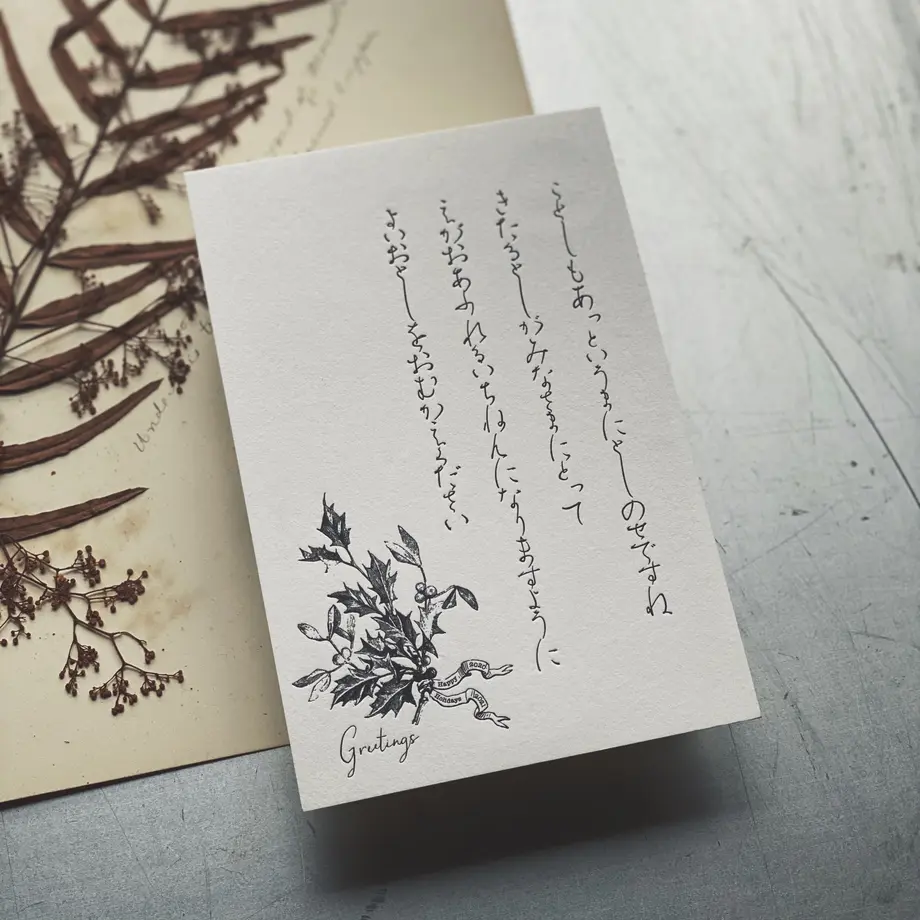 ことしもあっというまにとしのせですね
きたるとしがみなさまにとって
えがおあふれるいちねんになりますように
よいおとしをおむかえください
Happy 2020
Holidays 2021
Greetings